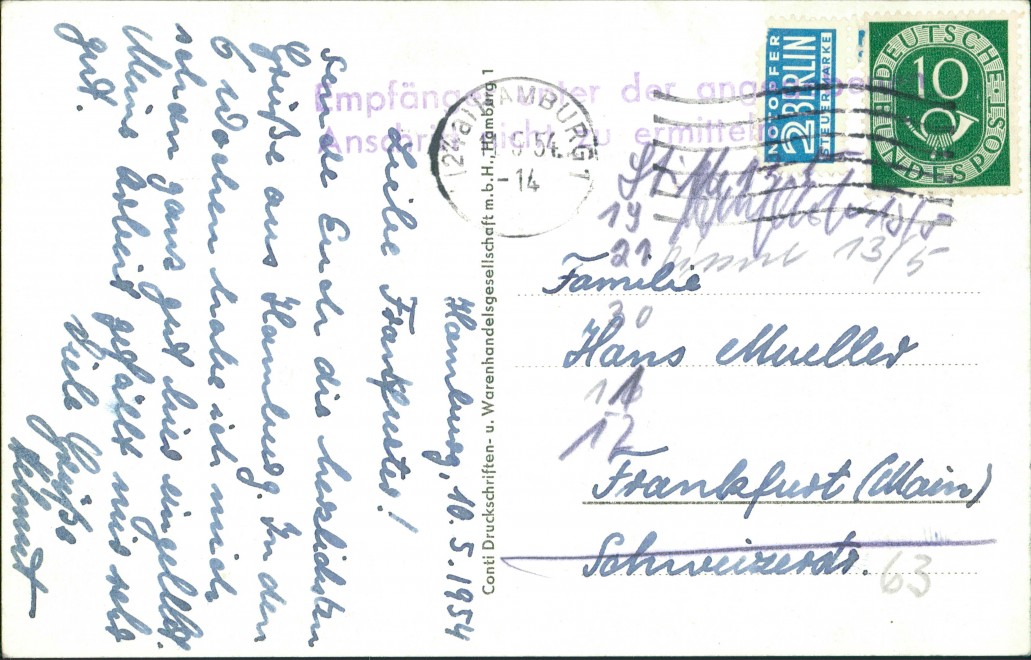 Hamburg, 10.5.1954
Liebe Frankfurter!
sende Euch die herzlichsten
Grüße aus Hamburg. In den
6 Wochen habe ich mich
schon ganz gut hier eingelebt.
Meine Arbeit gefällt mir sehr
gut.
Viele Grüße
Helmut
Conti Druckschriften- u. Warenhandelsgesellschaft m.b.H., Hamburg 1
Empfänger unter der angegebenen
Anschrift nicht zu ermitteln
HAMBURG 1
5 54
-14
NOTOPFER
2 BERLIN
STEUERMARKE
DEUTSCHE
10
BUNDESPOST
13/5
19
21
13/5
Familie
30
Hans Mueller
12
Frankfurt (Main)
Schweizerstr.
63